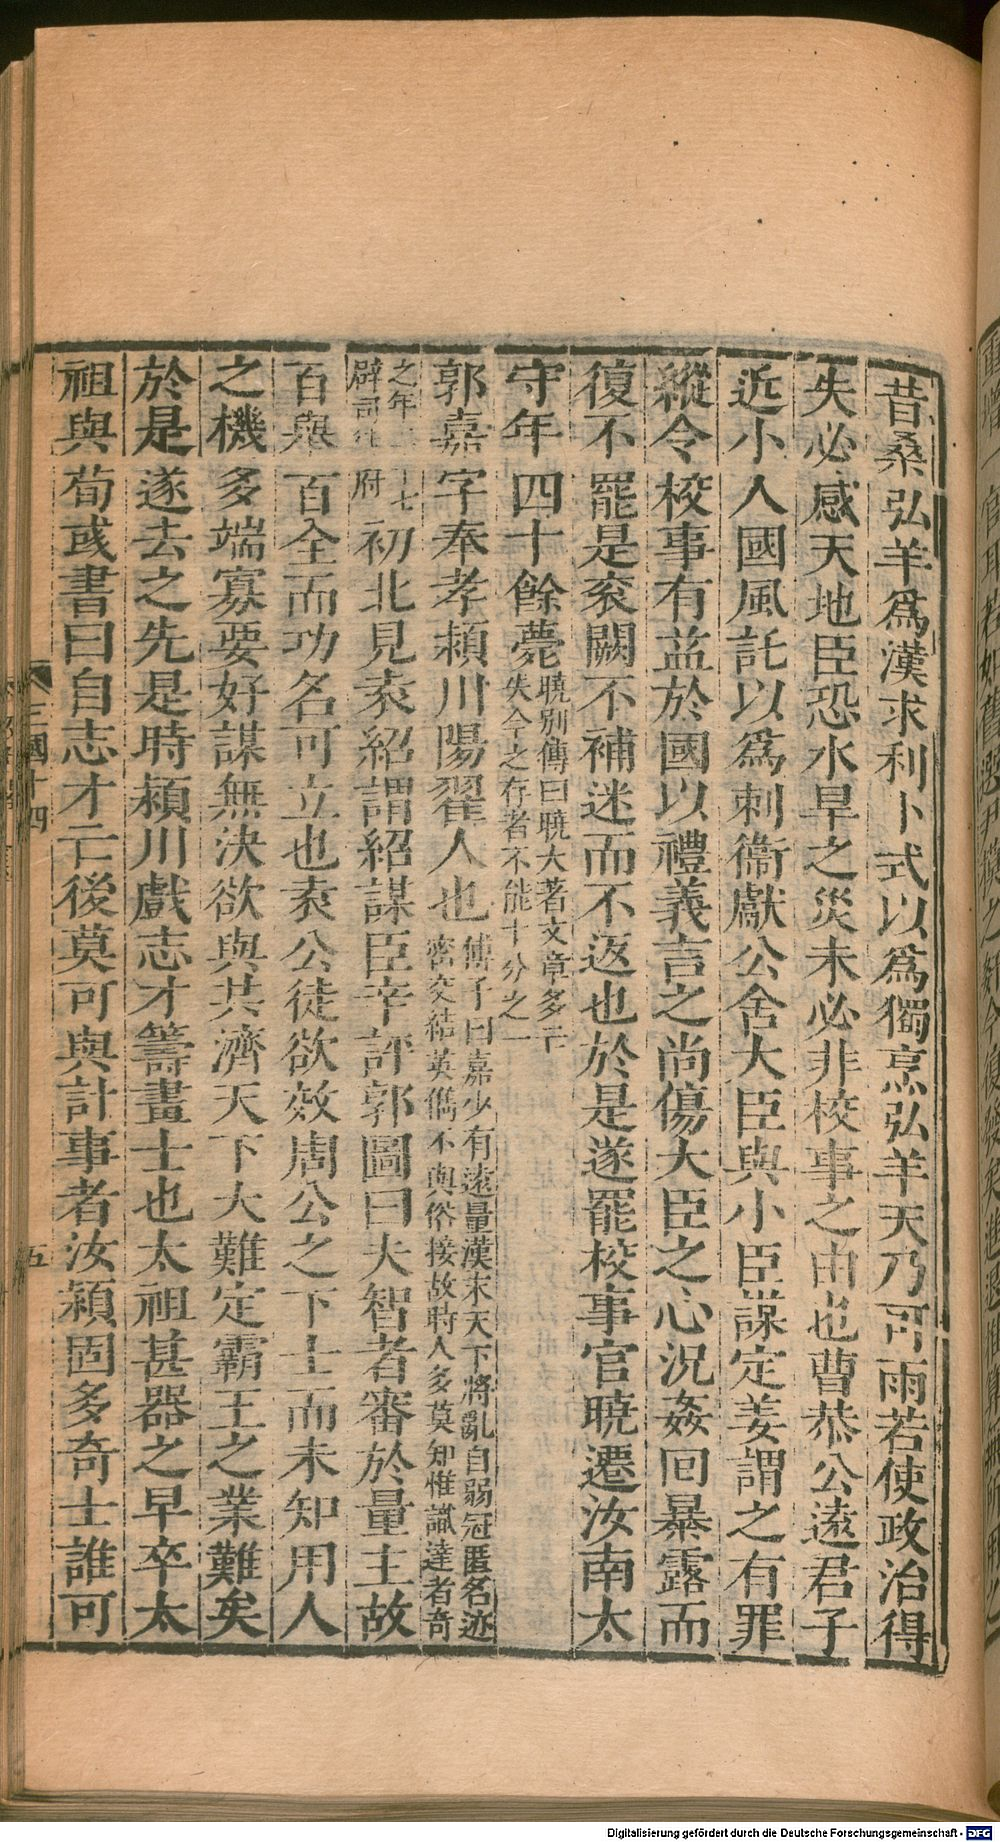 昔桑弘羊爲漢求利卜式以爲獨烹弘羊天乃可雨若使政治得
失必感天地臣恐水旱之災未必非校事之由也曹恭公遠君子
近小人國風託以爲刺衞獻公舍大臣與小臣謀定姜謂之有罪
縱令校事有益於國以禮義言之尚傷大臣之心況姦回暴露而
復不罷是衮闕不補迷而不返也於是遂罷校事官曉遷汝南太
守年四十餘薨曉別傳曰曉大著文章多亡
失今之存者不能十分之一
郭嘉字奉孝潁川陽翟人也傅子曰嘉少有遠量漢末天下將亂自弱冠匿名迹
密交結英儁不與俗接故時人多莫知惟識達者奇
之年二十七
辟司徒府
初北見袁紹謂紹謀臣辛評郭圖曰夫智者審於量主故
百舉百全而功名可立也袁公徒欲效周公之下士而未知用人
之機多端寡要好謀無決欲與共濟天下大難定霸王之業難矣
於是遂去之先是時潁川戲志才籌畫士也太祖甚器之早卒太
祖與荀彧書曰自志才亡後莫可與計事者汝潁固多奇士誰可
三國十四
五
Digitalisierung gefördert durch die Deutsche Forschungsgemeinschaft - DFG